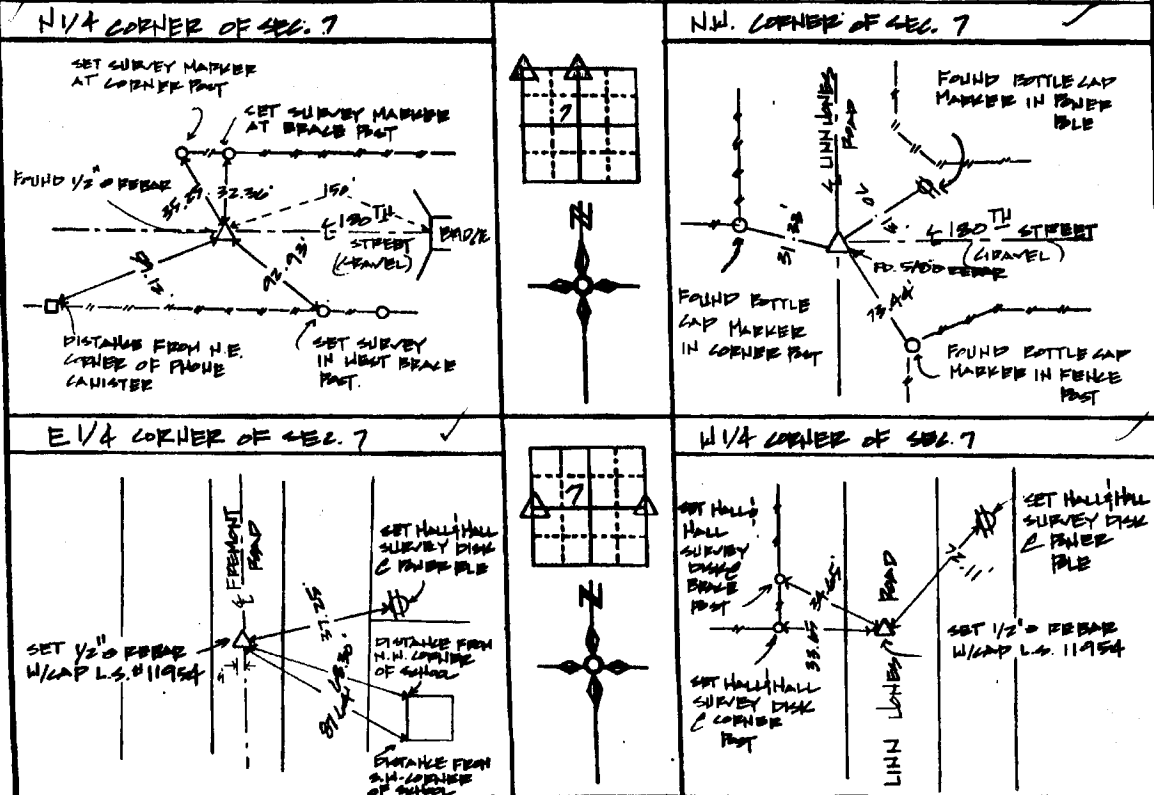 N 1/4 CORNER OF SEC. 7
SET SURVEY MARKER
AT CORNER POST
SET SURVEY MARKER
AT BRACE POST
FOUND 1/2" Ø REBAR
32.36'
150'
℄ 180TH
STREET
(GRAVEL)
BRIDGE
92.93'
DISTANCE FROM N.E.
CORNER OF PHONE
CANISTER
SET SURVEY
IN WEST BRACE
POST.
7
N
N.W. CORNER OF SEC. 7
℄ LINN JONES
ROAD
FOUND BOTTLE CAP
MARKER IN POWER
POLE
31.32'
℄ 180TH STREET
(GRAVEL)
FD. 5/8"Ø REBAR
73.44'
FOUND BOTTLE
CAP MARKER
IN CORNER POST
FOUND BOTTLE CAP
MARKER IN FENCE
POST
E 1/4 CORNER OF SEC. 7
℄ FREMONT
ROAD
SET HALL & HALL
SURVEY DISK
@ POWER POLE
37.25'
SET 1/2" Ø REBAR
W/CAP L.S. #11954
DISTANCE FROM
N.W. CORNER
OF SCHOOL
68.30'
87.64'
DISTANCE FROM
S.W. CORNER
OF SCHOOL
7
N
W 1/4 CORNER OF SEC. 7
SET HALL &
HALL
SURVEY
DISK @
BRACE
POST
34.65'
33.65'
SET HALL & HALL
SURVEY DISK
@ POWER
POLE
SET 1/2" Ø REBAR
W/CAP L.S. 11954
SET HALL & HALL
SURVEY DISK
@ CORNER
POST
LINN JONES ROAD